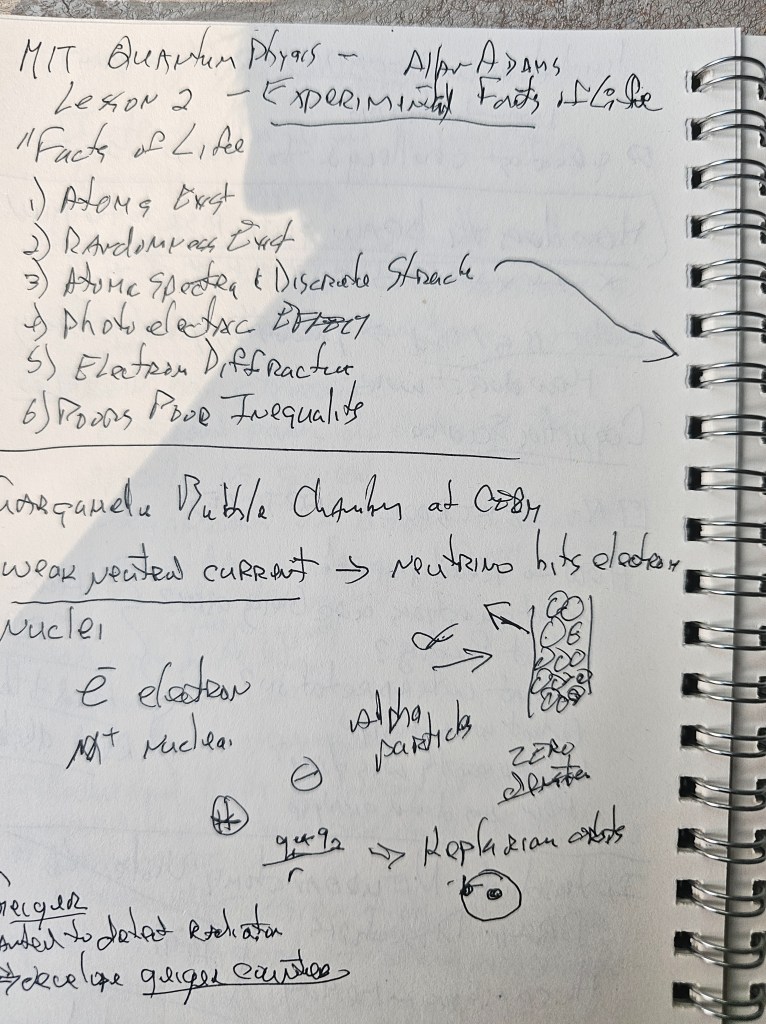 MIT Quantum Physics - Allan Adams
Lesson 2 - Experimental Facts of Life
"Facts of Life
1) Atoms Exist
2) Randomness Exist
3) Atomic Spectra & Discrete Struck
4) Photoelectric Effect
5) Electron Diffraction
6)
Inequality
Bubble Chamber at CERN
weak neutral current → neutrino hits electron
Nuclei
e̅ electron
+ nuclei
α
Alpha
particles
ZERO
-
+
q₁ * q₂
r
→ Keplarian orbits
Geiger
wanted to detect Radiation
→ develope geiger counter